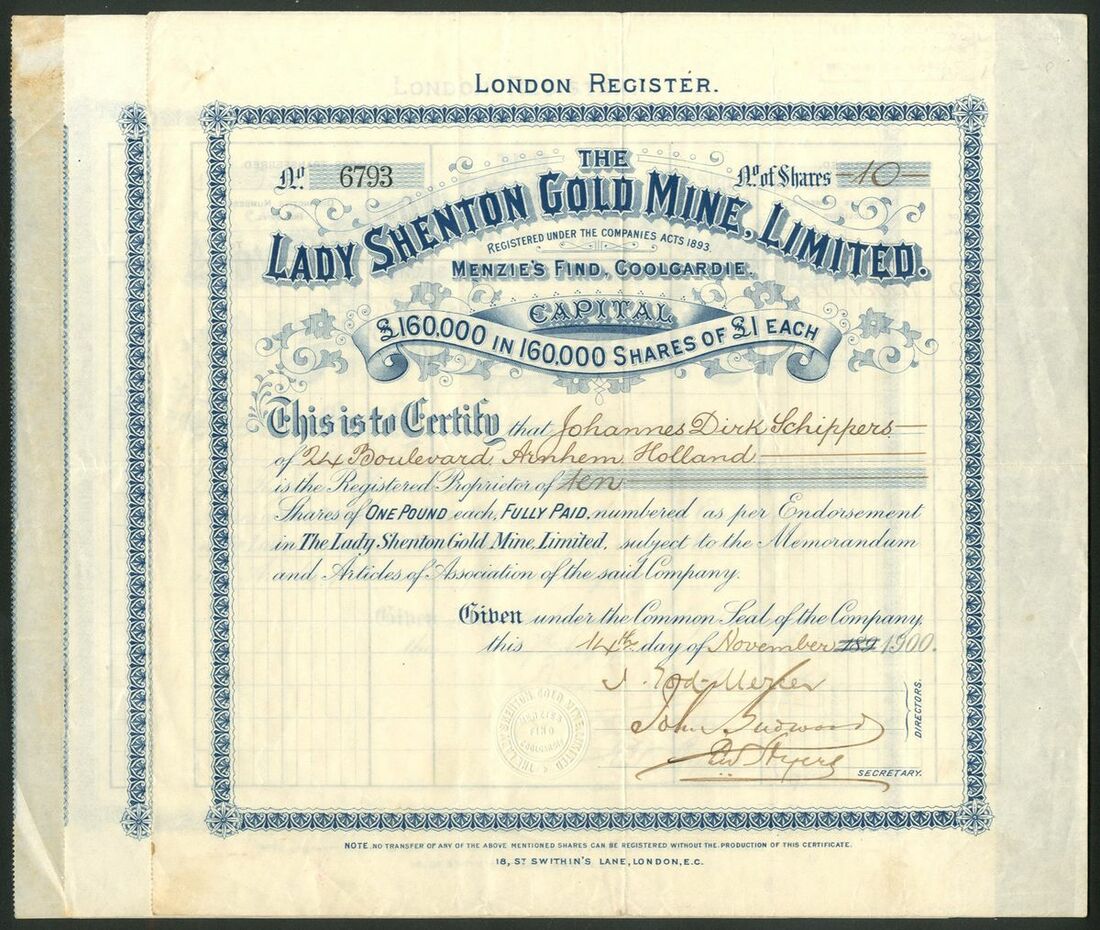 LONDON REGISTER.
No. 6793
THE
No. of Shares 10
LADY SHENTON GOLD MINE, LIMITED.
REGISTERED UNDER THE COMPANIES ACTS 1893.
MENZIE'S FIND, COOLGARDIE.
CAPITAL
£160,000 IN 160,000 SHARES OF £1 EACH
This is to Certify that Johannes Dirk Schippers
of 24 Boulevard, Arnhem Holland
is the Registered Proprietor of ten
Shares of ONE POUND each, FULLY PAID, numbered as per Endorsement
in The Lady Shenton Gold Mine, Limited, subject to the Memorandum
and Articles of Association of the said Company.
Given under the Common Seal of the Company,
this 14th day of November 189 1900.
John
DIRECTORS.
SECRETARY.
NOTE. NO TRANSFER OF ANY OF THE ABOVE MENTIONED SHARES CAN BE REGISTERED WITHOUT THE PRODUCTION OF THIS CERTIFICATE.
18, ST SWITHIN'S LANE, LONDON, E.C.